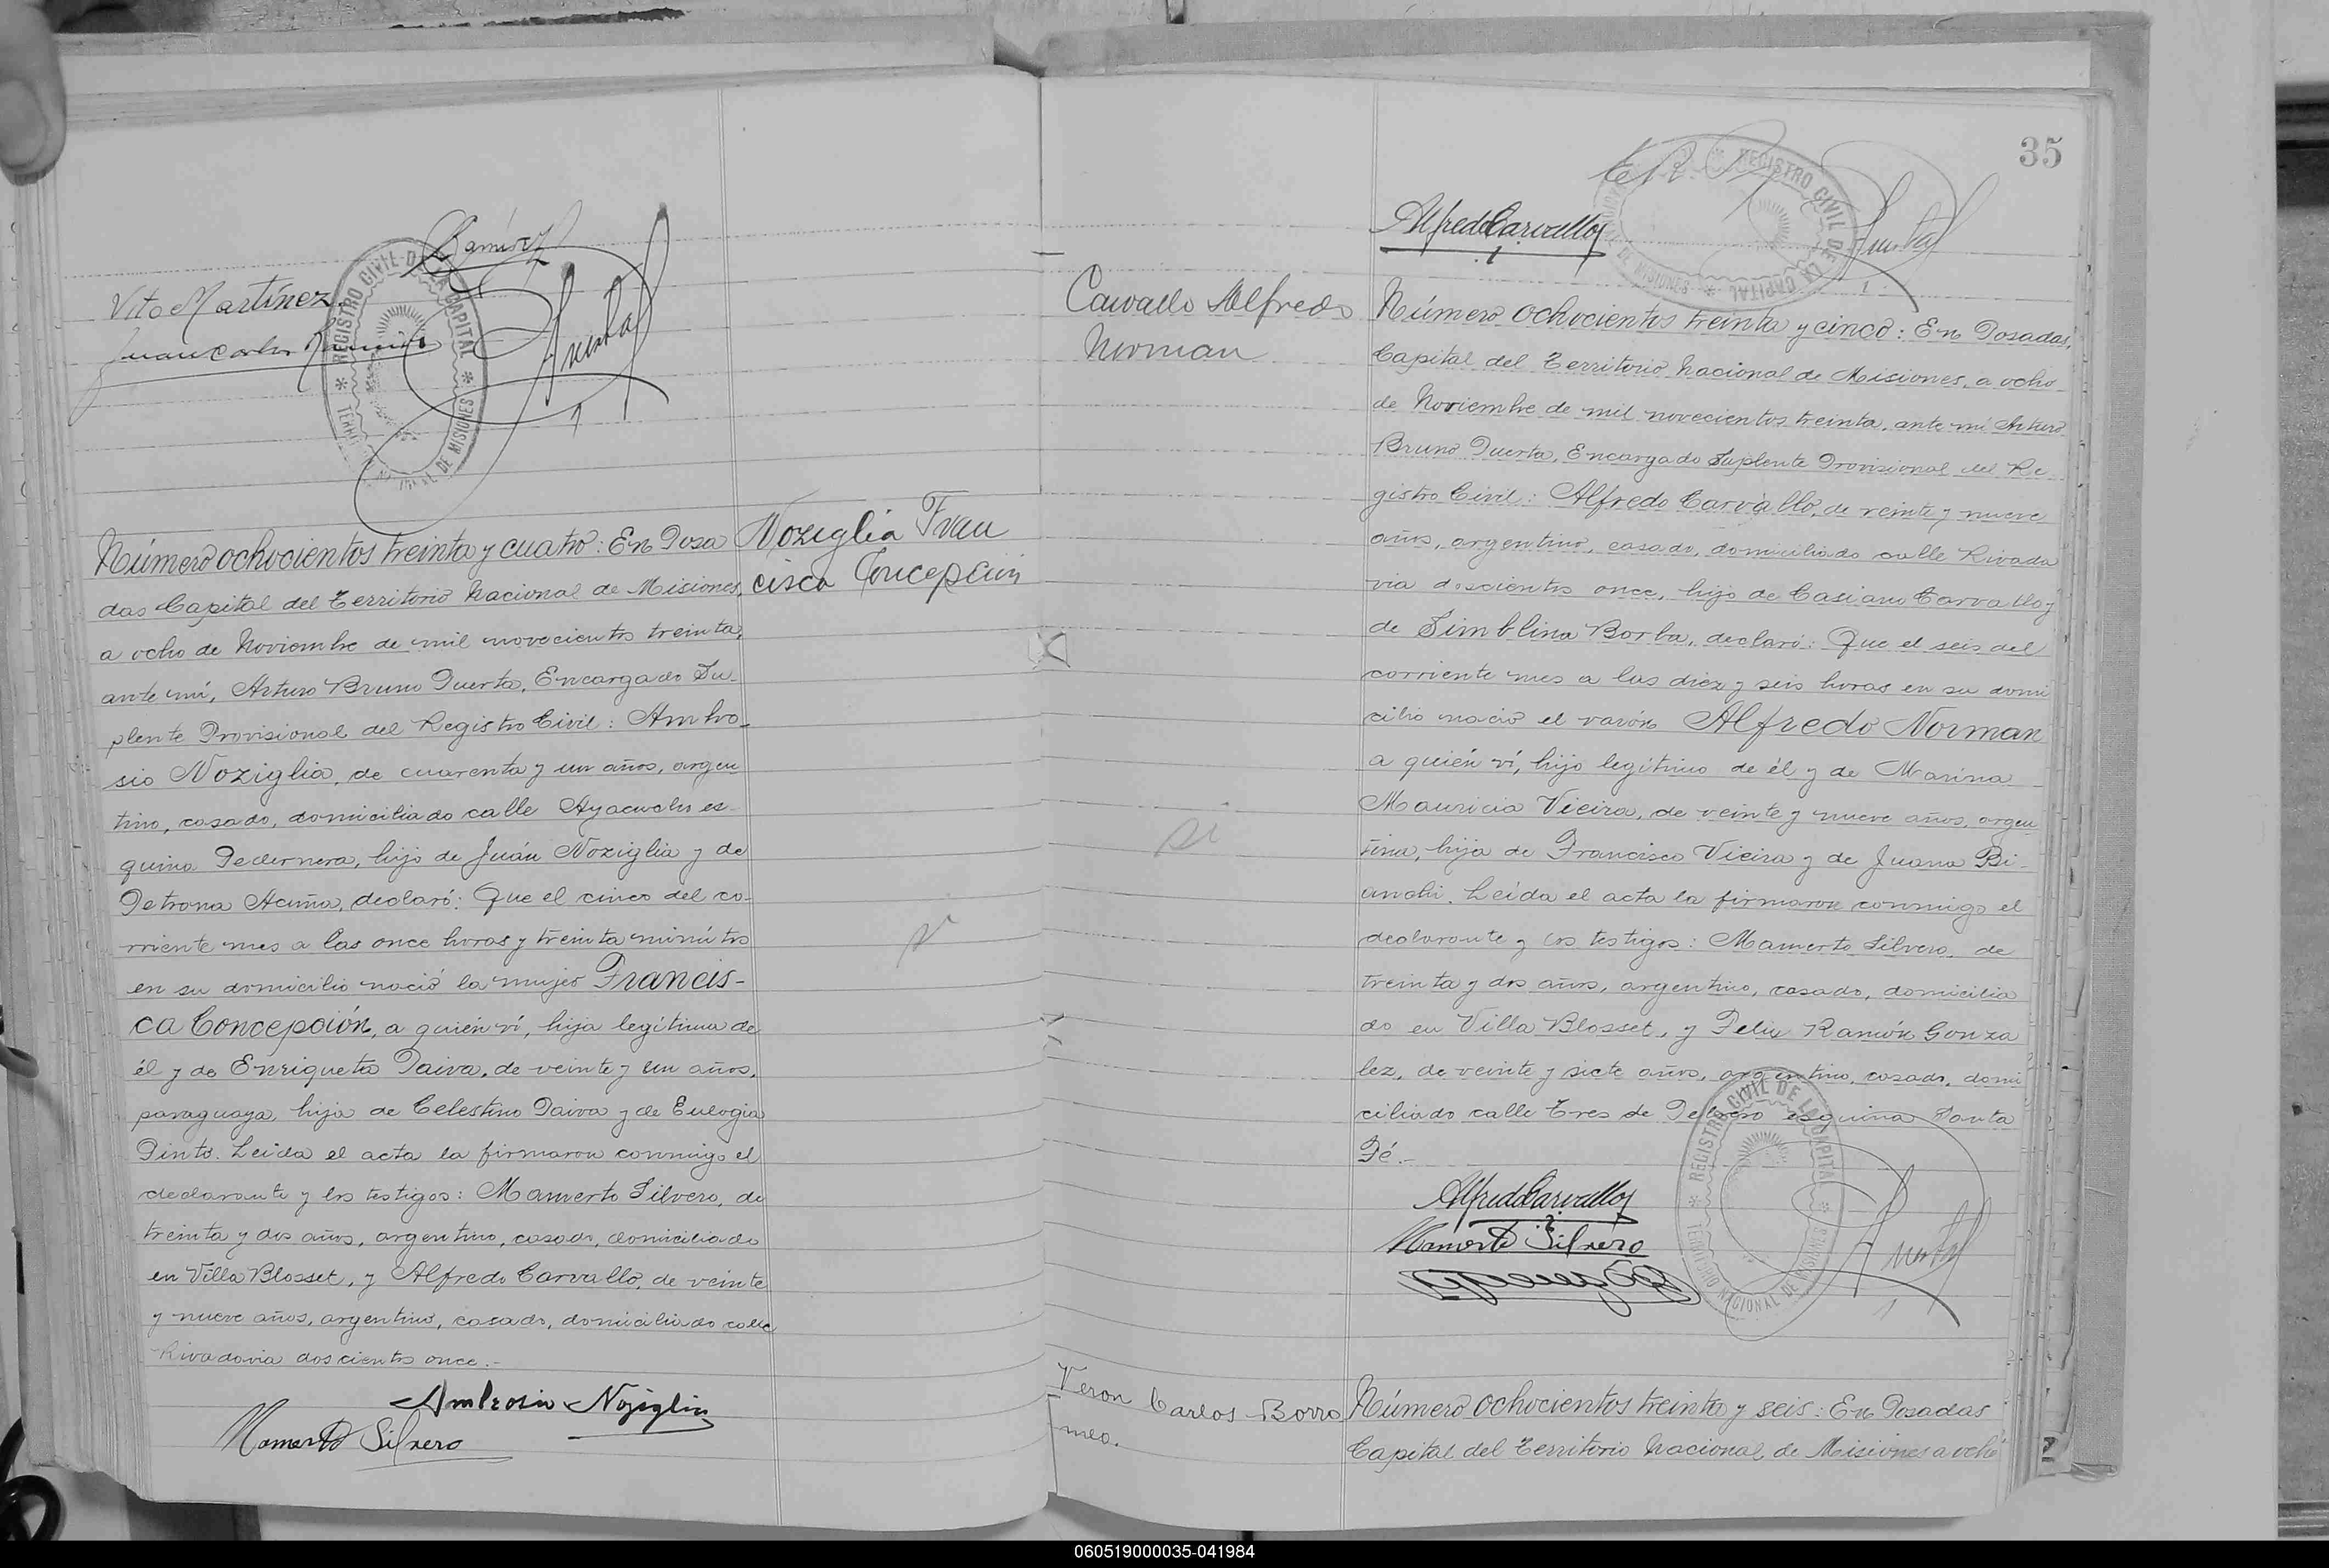 Ramírez
Vito Martínez
Juan Carlos
Puerta
REGISTRO CIVIL DE LA CAPITAL
DE MISIONES
Número ochocientos treinta y cuatro: En Posa
das Capital del Territorio Nacional de Misiones,
a ocho de Noviembre de mil novecientos treinta,
ante mí, Arturo Bruno Puerta, Encargado Su-
plente Provisional del Registro Civil: Ambro-
sio Noziglia, de cuarenta y un años, argen
tino, casado, domiciliado calle Ayacucho es-
quina Pedernera, hijo de Juán Noziglia y de
Petrona Acuña, declaró: Que el cinco del co-
rriente mes a las once horas y treinta minutos
en su domicilio nació la mujer Francis-
ca Concepción, a quién ví, hija legítima de
él y de Enriqueta Paiva, de veinte y un años,
paraguaya, hija de Celestino Paiva y de Eulogia
Pinto. Leida el acta la firmaron conmigo el
declarante y los testigos: Mamerto Silvero, de
treinta y dos años, argentino, casado, domiciliado
en Villa Blosset, y Alfredo Carvallo, de veinte
y nueve años, argentino, casado, domiciliado calle
Rivadavia doscientos once.-
Ambrosio Noziglia
Mamerto Silvero
Noziglia Fran
cisca Concepción
35
Alfredo Carvallo
REGISTRO CIVIL DE LA CAPITAL
DE MISIONES
Puerta
Carvallo Alfredo
Norman
si
Número ochocientos treinta y cinco: En Posadas,
Capital del Territorio Nacional de Misiones, a ocho
de Noviembre de mil novecientos treinta, ante mí Arturo
Bruno Puerta, Encargado Suplente Provisional del Re
gistro Civil: Alfredo Carvallo, de veinte y nueve
años, argentino, casado, domiciliado calle Rivada
via doscientos once, hijo de Casiano Carvallo y
de Simblina Borba, declaró: Que el seis del
corriente mes a las diez y seis horas en su domi
cilio nació el varón Alfredo Norman
a quién ví, hijo legítimo de él y de Marina
Mauricia Vieira, de veinte y nueve años, argen
tina, hija de Francisco Vieira y de Juana Bi-
anchi. Leída el acta la firmaron conmigo el
declarante y los testigos: Mamerto Silvero, de
treinta y dos años, argentino, casado, domicilia
do en Villa Blosset, y Felix Ramón Gonza
lez, de veinte y siete años, argentino, casado, domi
ciliado calle Tres de Febrero esquina Santa
Fé.-
Alfredo Carvallo
Mamerto Silvero
Puerta
REGISTRO CIVIL DE LA CAPITAL
TERRITORIO NACIONAL DE MISIONES
Veron Carlos Borro
meo.
Número ochocientos treinta y seis: En Posadas
Capital del Territorio Nacional de Misiones a ocho
060519000035-041984